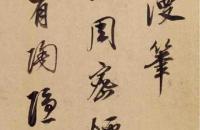 漫筆
周密煙
有陶隱